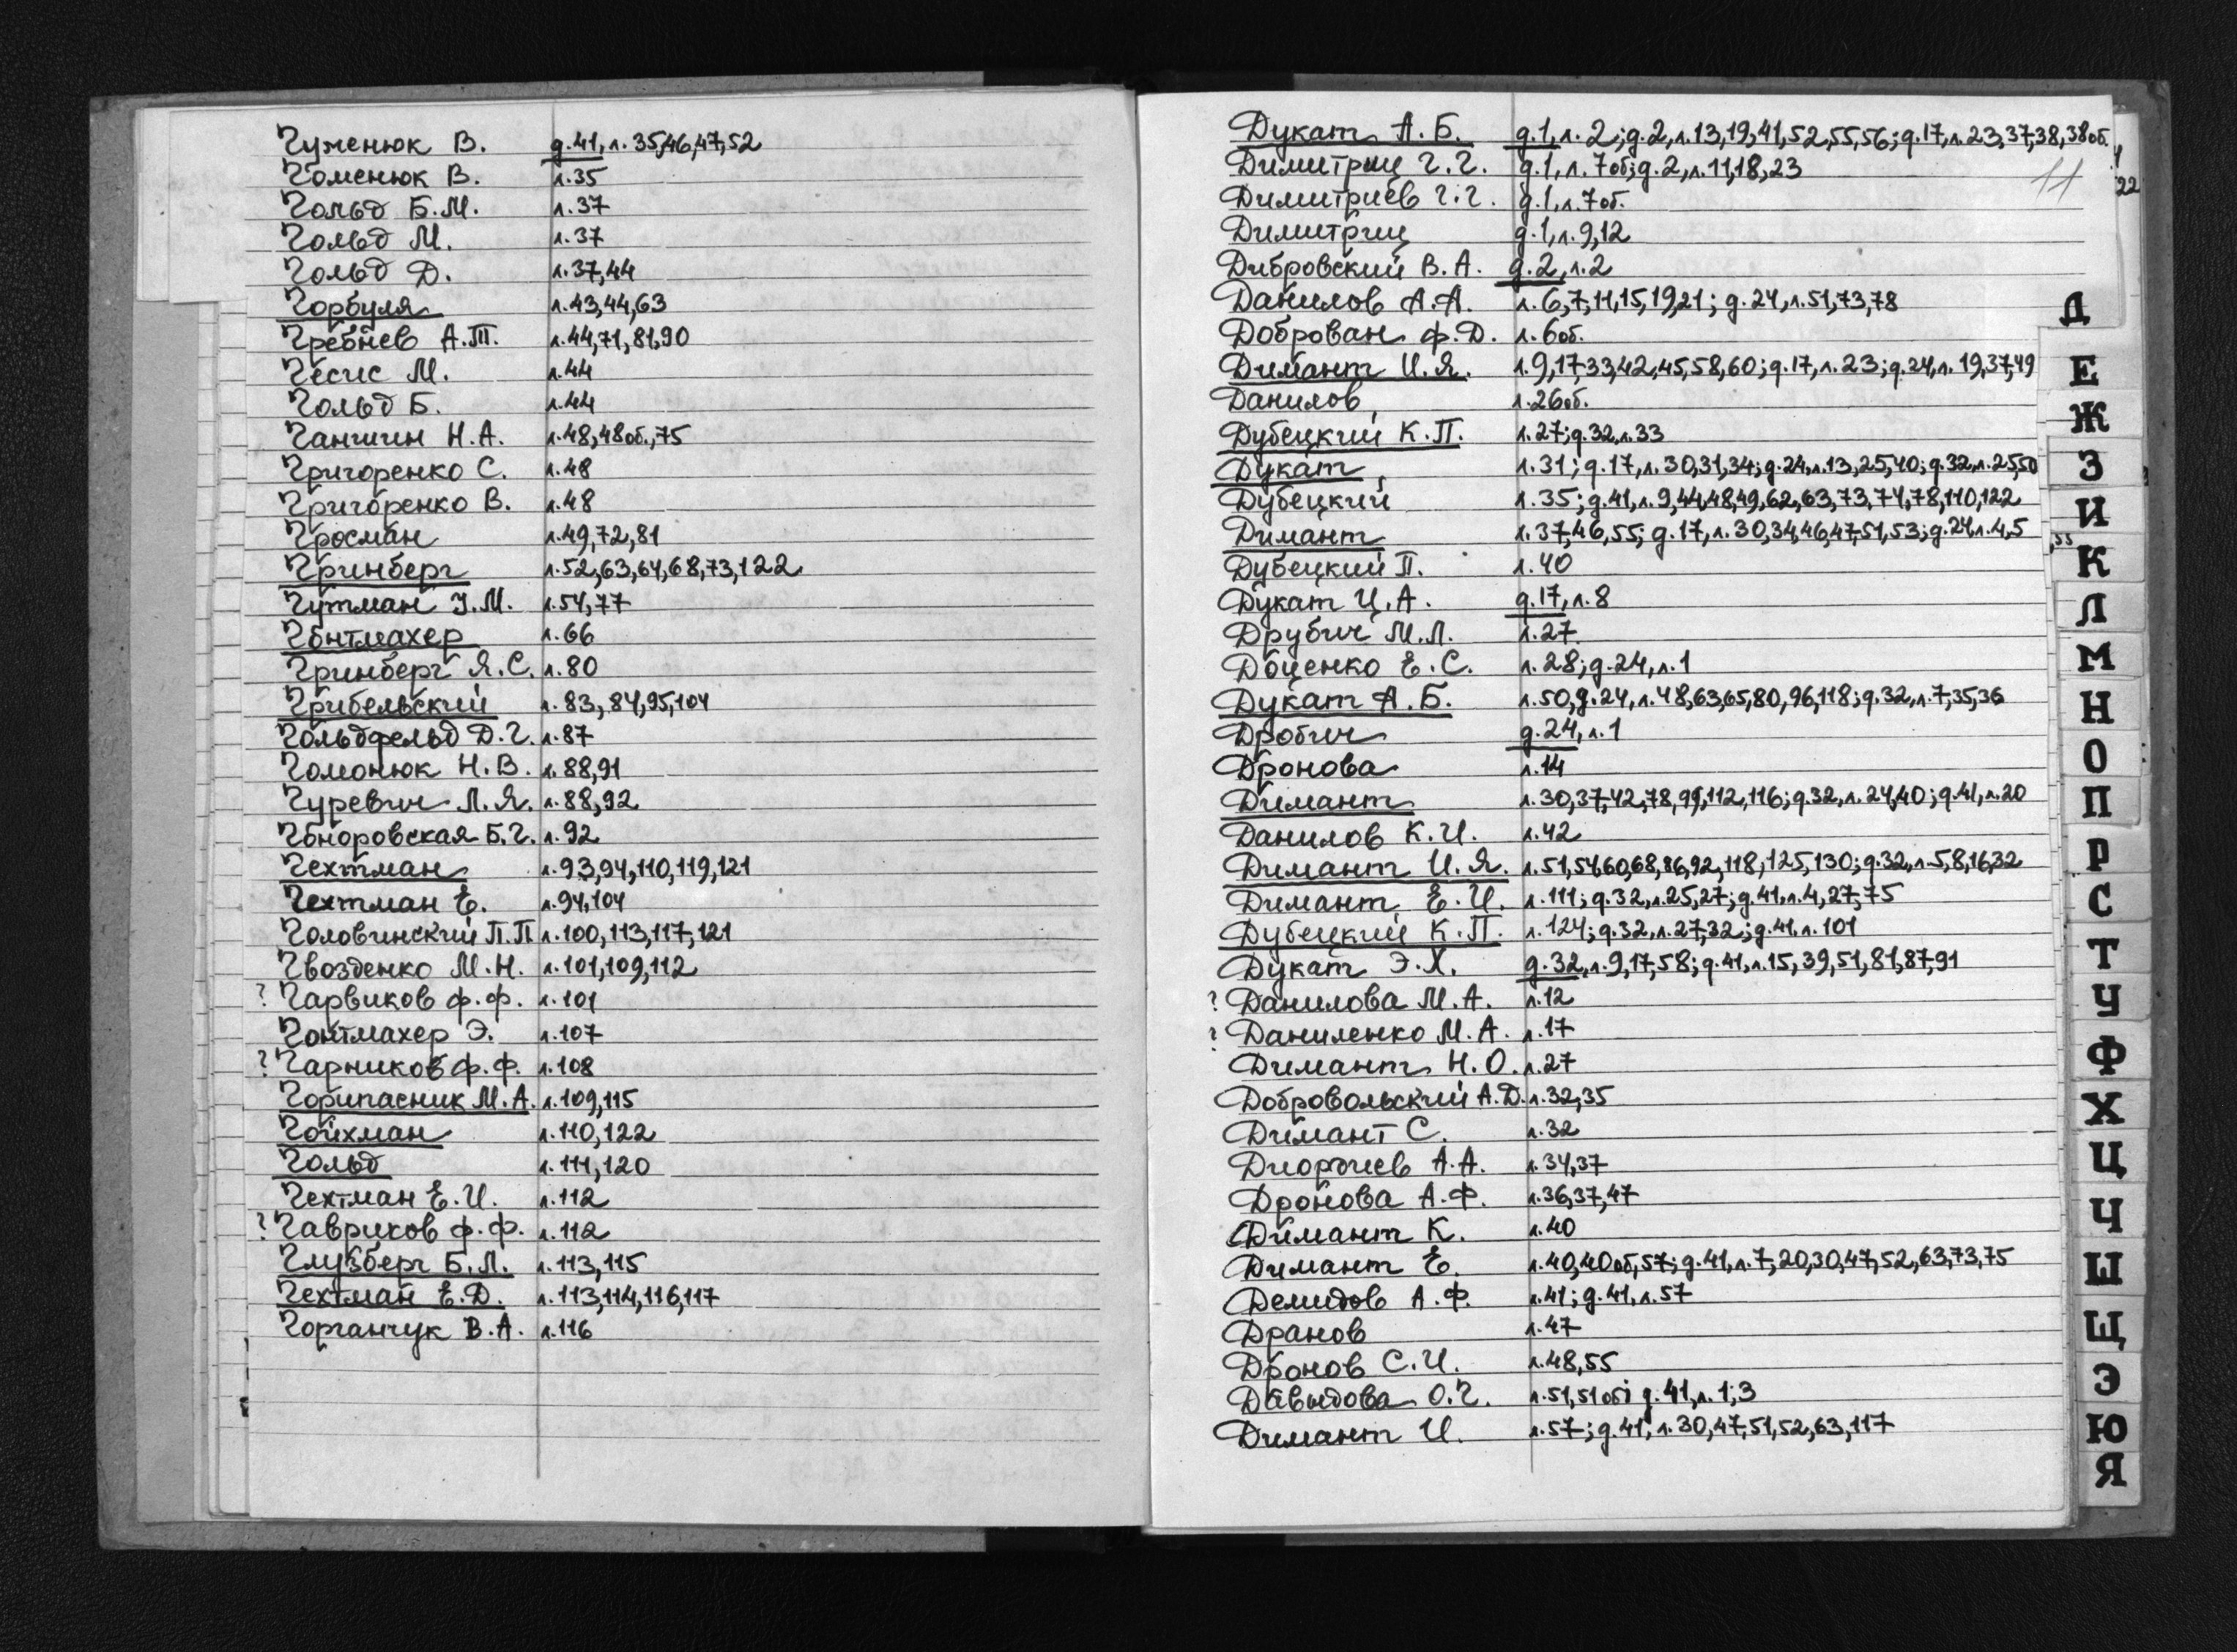 Гуменюк В. д.41, л.35,46,47,52
Гоменюк В. л.35
Гольд Б.М. л.37
Гольд М. л.37
Гольд Д. л.37,44
Горбуля л.43,44,63
Гребнев А.Т. л.44,71,81,90
Гесис М. л.44
Гольд Б. л.44
Ганшин Н.А. л.48,48об.,75
Григоренко С. л.48
Григоренко В. л.48
Гросман л.49,72,81
Гринберг л.52,63,64,68,73,122
Гутман У.М. л.54,77
Гонтмахер л.66
Гринберг Я.С. л.80
Грибельский л.83,84,95,104
Гольдфельд Д.Г. л.87
Гомонюк Н.В. л.88,91
Гуревич Л.Я. л.88,92
Гоноровская Б.Г. л.92
Гехтман л.93,94,110,119,121
Гехтман Е. л.94,104
Головинский П.П л.100,113,117,121
Гвозденко М.Н. л.101,109,112
? Гарвиков ф.ф. л.101
Гонтмахер Э. л.107
? Гарников ф.ф. л.108
Горипасник М.А. л.109,115
Гойхман л.110,122
Гольд л.111,120
Гехтман Е.И. л.112
? Гавриков ф.ф. л.112
Глузберг Б.Л. л.113,115
Гехтман Е.Д. л.113,114,116,117
Горганчук В.А. л.116
Дукат А.Б. д.1, л.2; д.2, л.13,19,41,52,55,56; д.17, л.23,37,38,38об.
Димитриц Г.Г. д.1, л.7об; д.2, л.11,18,23
11 22
Димитриев Г.Г. д.1, л.7об.
Димитриц д.1, л.9,12
Дибровский В.А. д.2, л.2
Данилов А.А. л.6,7,11,15,19,21; д.24, л.51,73,78
Д
Доброван ф.Д. л.6об.
Димант И.Я. л.9,17,33,42,45,58,60; д.17, л.23; д.24, л.19,37,49
Е
Данилов л.26об.
Ж
Дубецкий К.П. л.27; д.32, л.33
Дукат л.31; д.17, л.30,31,34; д.24, л.13,25,40; д.32, л.25,50
З
Дубецкий л.35; д.41, л.9,44,48,49,62,63,73,74,78,110,122
И
Димант л.37,46,55; д.17, л.30,34,46,47,51,53; д.24, л.4,5
,55
Дубецкий П. л.40
К
Дукат Ц.А. д.17, л.8
Л
Друбич М.Л. л.27
Доценко Е.С. л.28; д.24, л.1
М
Дукат А.Б. л.50, д.24, л.48,63,65,80,96,118; д.32, л.7,35,36
Н
Дробич д.24, л.1
О
Дронова л.14
Димант л.30,37,42,78,99,112,116; д.32, л.24,40; д.41, л.20
П
Данилов К.И. л.42
Димант И.Я. л.51,54,60,68,86,92,118,125,130; д.32, л.5,8,16,32
Р
Димант Е.И. л.111; д.32, л.25,27; д.41, л.4,27,75
С
Дубецкий К.П. л.124; д.32, л.27,32; д.41, л.101
Дукат Э.Х. д.32, л.9,17,58; д.41, л.15,39,51,81,87,91
Т
? Данилова М.А. л.12
У
? Даниленко М.А. л.17
Димант Н.О. л.27
Ф
Добровольский А.Д. л.32,35
Х
Димант С. л.32
Диордиев А.А. л.34,37
Ц
Дронова А.Ф. л.36,37,47
Ч
Димант К. л.40
Димант Е. л.40,40об,57; д.41, л.7,20,30,47,52,63,73,75
Ш
Демидов А.Ф. л.41; д.41, л.57
Дранов л.47
Щ
Дронов С.И. л.48,55
Э
Давыдова О.Г. л.51,51об; д.41, л.1;3
Димант И. л.57; д.41, л.30,47,51,52,63,117
Ю
Я